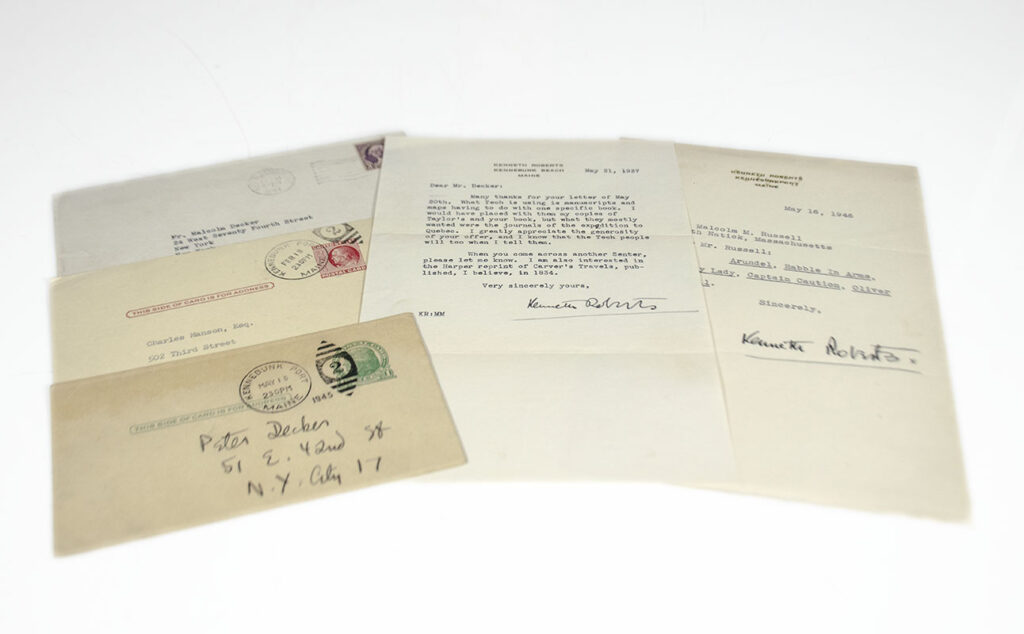 Mr. Malcolm Decker
24 West Seventy Fourth Street
New York
KENNEBUNK PORT
FEB 18
230PM
MAINE
2
POSTAL CARD
THIS SIDE OF CARD IS FOR ADDRESS
Charles Hanson, Esq.
502 Third Street
KENNEBUNK PORT
MAY 15
230PM
MAINE
1945
2
THIS SIDE OF CARD IS FOR ADDRESS
Peter Decker
51 E. 42nd St
N.Y. City 17
KENNETH ROBERTS
KENNEBUNK BEACH
MAINE
May 21, 1937
Dear Mr. Decker:
Many thanks for your letter of May
20th. What Tech is using is manuscripts and
maps having to do with one specific book. I
would have placed with them my copies of
Taylor's and your book, but what they mostly
wanted were the journals of the expdition to
Quebec. I greatly appreciate the generosity
of your offer, and I know that the Tech people
will too when I tell them.
When you come across another Senter,
please let me know. I am also interested in
the Harper reprint of Carver's Travels, pub-
lished, I believe, in 1834.
Very sincerely yours,
Kenneth Roberts
KR:MM
KENNETH ROBERTS
KENNEBUNKPORT
MAINE
May 16, 1946
Malcolm M. Russell
th Natick, Massachusetts
Mr. Russell:
Arundel, Rabble In Arms,
y Lady, Captain Caution, Oliver
l.
Sincerely,
Kenneth Roberts